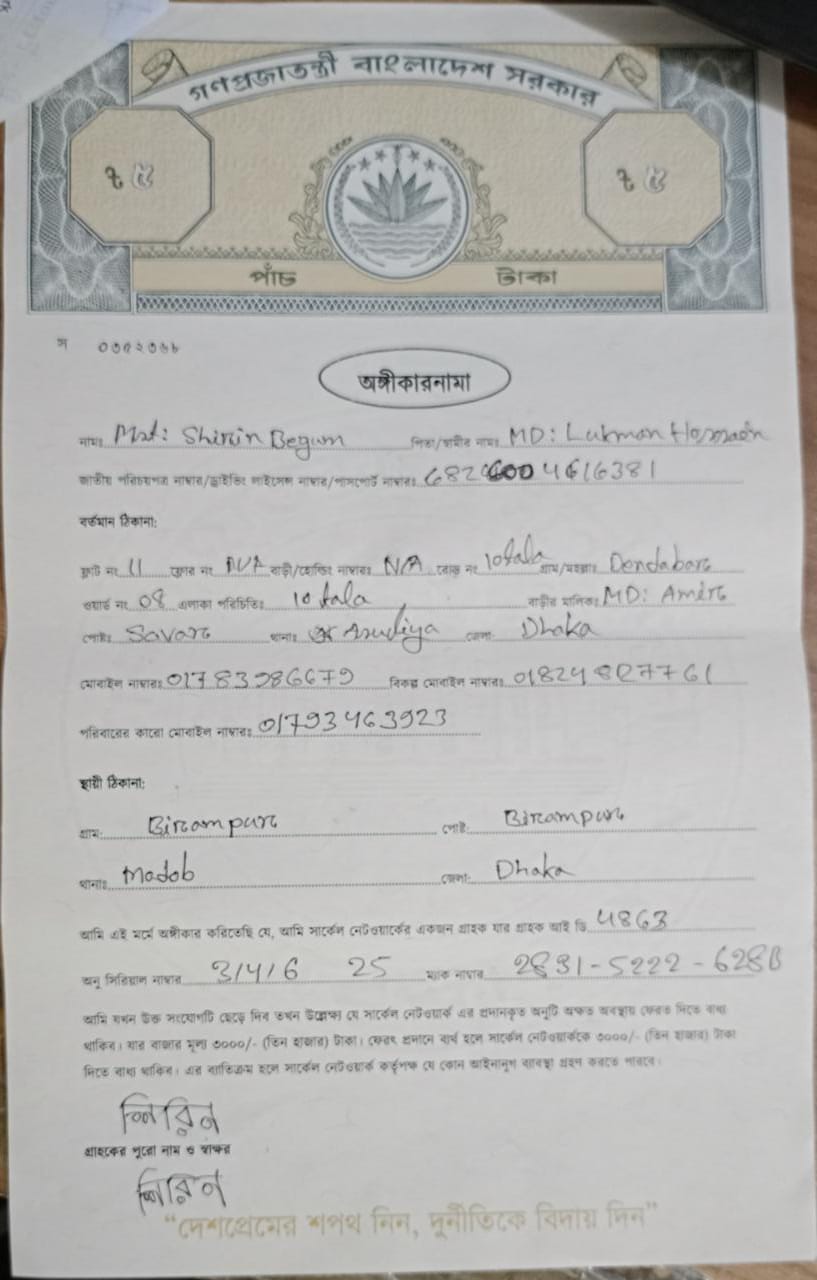 গণপ্রজাতন্ত্রী বাংলাদেশ সরকার
৳ ৫ ৳ ৫
পাঁচ টাকা
অঙ্গীকারনামা
নামঃ Mst: Shirin Begum পিতা/স্বামীর নামঃ MD: Lukman Hossain
জাতীয় পরিচয়পত্র নাম্বার/ড্রাইভিং লাইসেন্স নাম্বার/পাসপোর্ট নাম্বারঃ
বর্তমান ঠিকানা:
ফ্লাট নং 11 ফ্লোর নং N/A বাড়ী/হোল্ডিং নাম্বারঃ N/A রোড নং 10 tala গ্রাম/মহল্লাঃ Dendabar
ওয়ার্ড নং 08 এলাকা পরিচিতিঃ 10 tala বাড়ীর মালিকঃ MD: Amir
পোষ্টঃ Savar থানাঃ জেলা Dhaka
মোবাইল নাম্বারঃ 01783986679 বিকল্প মোবাইল নাম্বারঃ
পরিবারের কারো মোবাইল নাম্বারঃ 01793463923
স্থায়ী ঠিকানা:
গ্রাম: Birampur পোষ্ট: Birampur
থানাঃ Madob জেলা: Dhaka
আমি এই মর্মে অঙ্গীকার করিতেছি যে, আমি সার্কেল নেটওয়ার্কের একজন গ্রাহক যার গ্রাহক আই ডি 4863
অনু সিরিয়াল নাম্বার 3/4/6 25 ম্যাক নাম্বার 2831-5222-628B
আমি যখন উক্ত সংযোগটি ছেড়ে দিব তখন উল্লেক্ষ্য যে সার্কেল নেটওয়ার্ক এর প্রদানকৃত অনুটি অক্ষত অবস্থায় ফেরত দিতে বাধ্য
থাকিব। যার বাজার মূল্য ৩০০০/- (তিন হাজার) টাকা। ফেরৎ প্রদানে ব্যর্থ হলে সার্কেল নেটওয়ার্ককে ৩০০০/- (তিন হাজার) টাকা
দিতে বাধ্য থাকিব। এর ব্যতিক্রম হলে সার্কেল নেটওয়ার্ক কর্তৃপক্ষ যে কোন আইনানুগ ব্যবস্থা গ্রহন করতে পারবে।
শিরিন
গ্রাহকের পুরো নাম ও স্বাক্ষর
শিরিন
“দেশপ্রেমের শপথ নিন, দুর্নীতিকে বিদায় দিন”